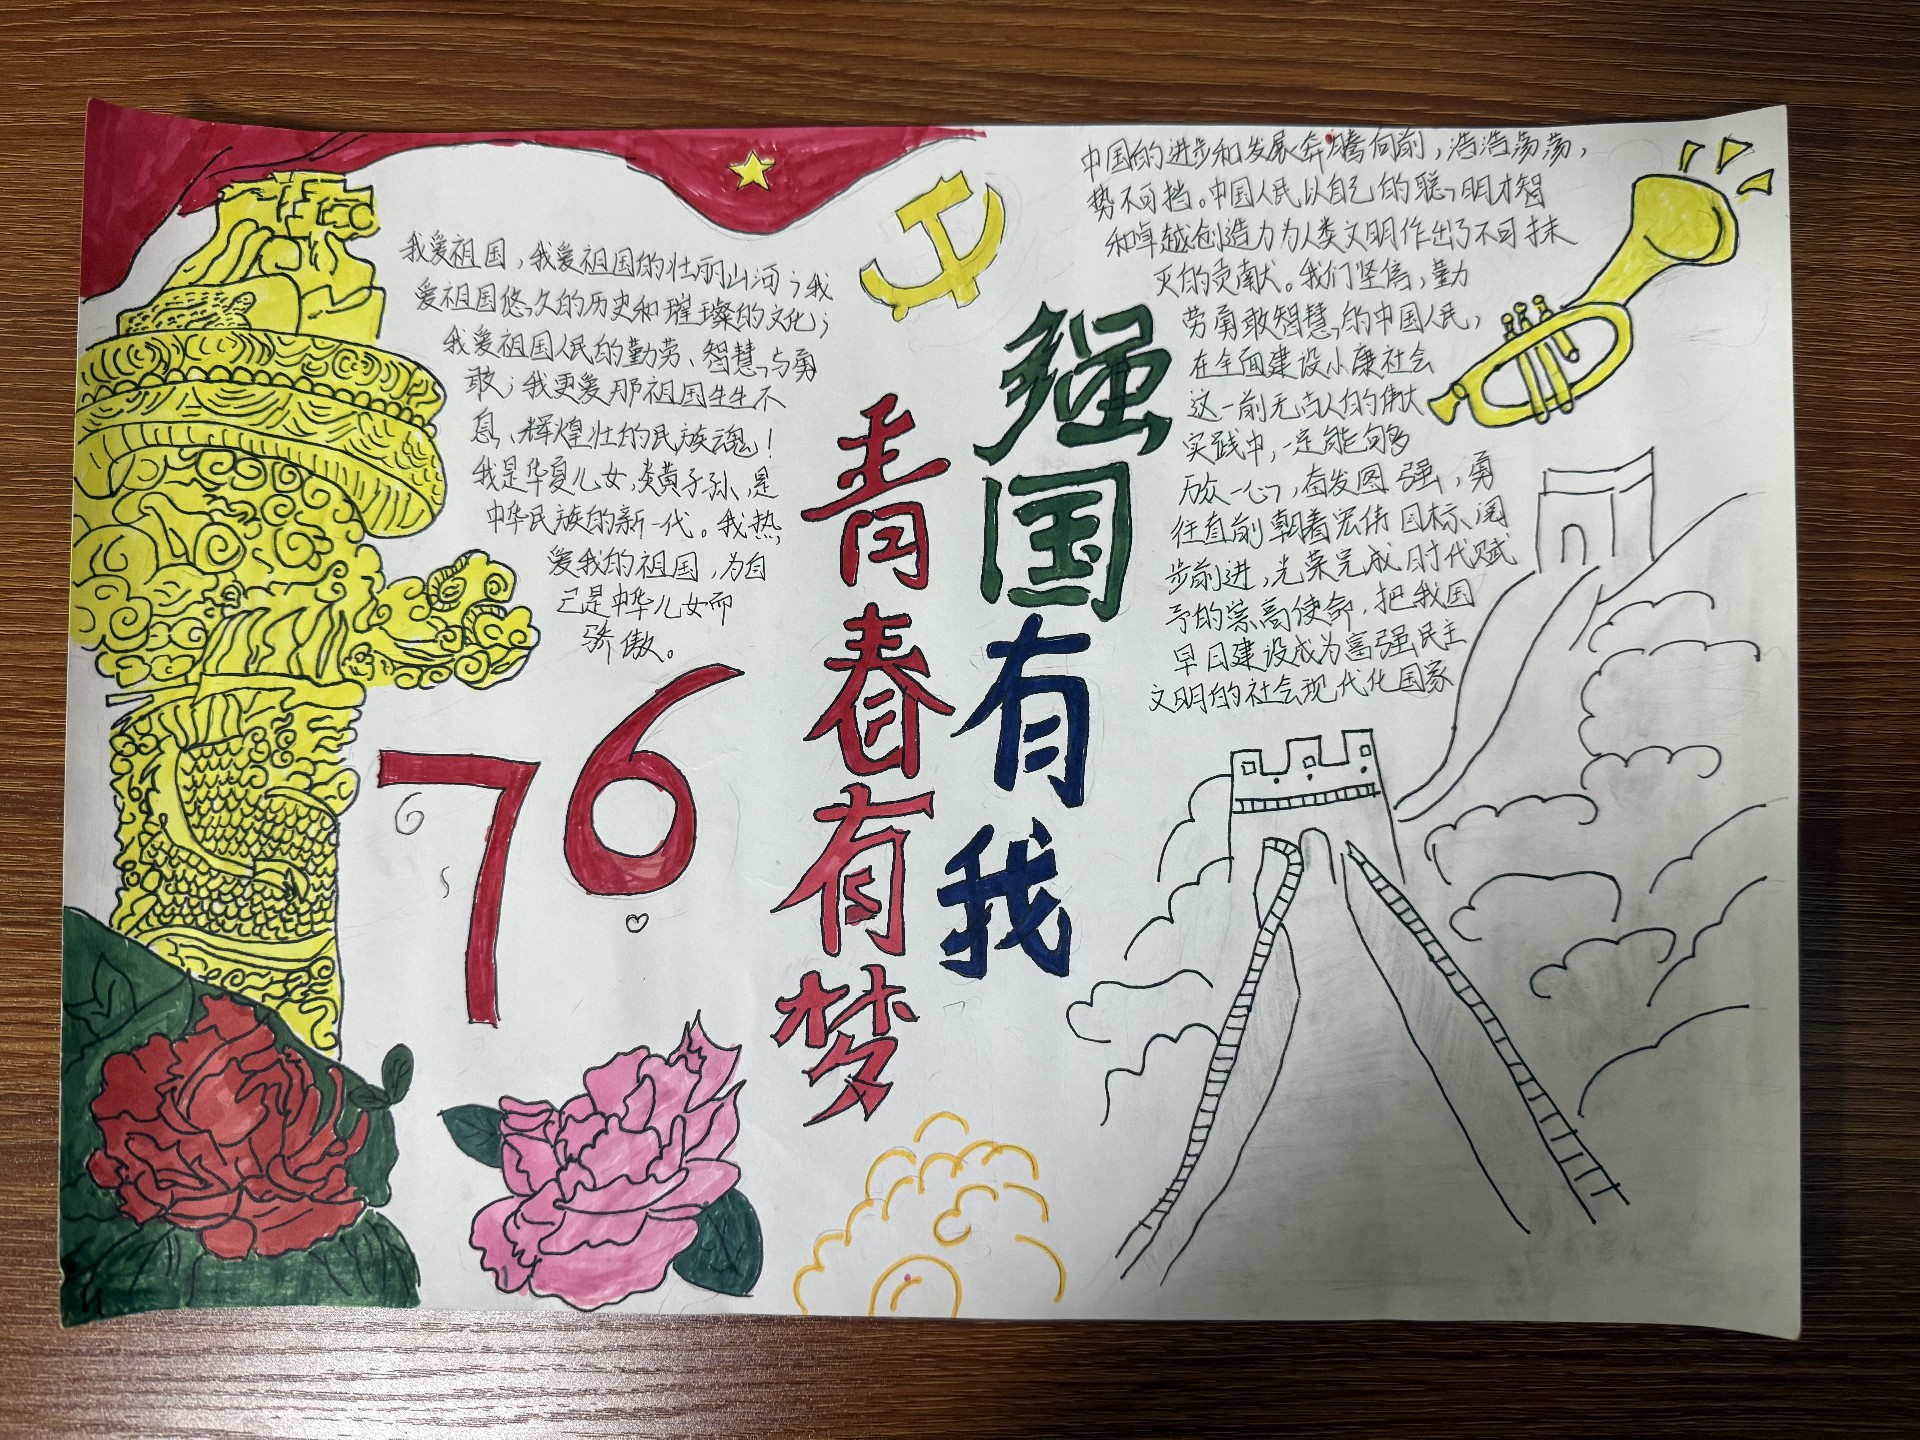 我爱祖国，我爱祖国的壮丽山河；我
爱祖国悠久的历史和璀璨的文化；
我爱祖国人民的勤劳、智慧与勇
敢；我更爱那祖国生生不
息、辉煌壮的民族魂！
我是华夏儿女，炎黄子孙，是
中华民族的新一代。我热
爱我的祖国，为自
己是中华儿女而
骄傲。
76
强国有我
青春有梦
中国的进步和发展奔腾向前，浩浩荡荡，
势不可挡。中国人民以自己的聪明才智
和卓越创造力为人类文明作出了不可抹
灭的贡献。我们坚信，勤
劳勇敢智慧的中国人民，
在全面建设小康社会
这一前无古人的伟大
实践中，一定能够
万众一心，奋发图强，勇
往直前朝着宏伟国标、阔
步前进，光荣完成时代赋
予的崇高使命，把我国
早日建设成为富强民主
文明的社会现代化国家